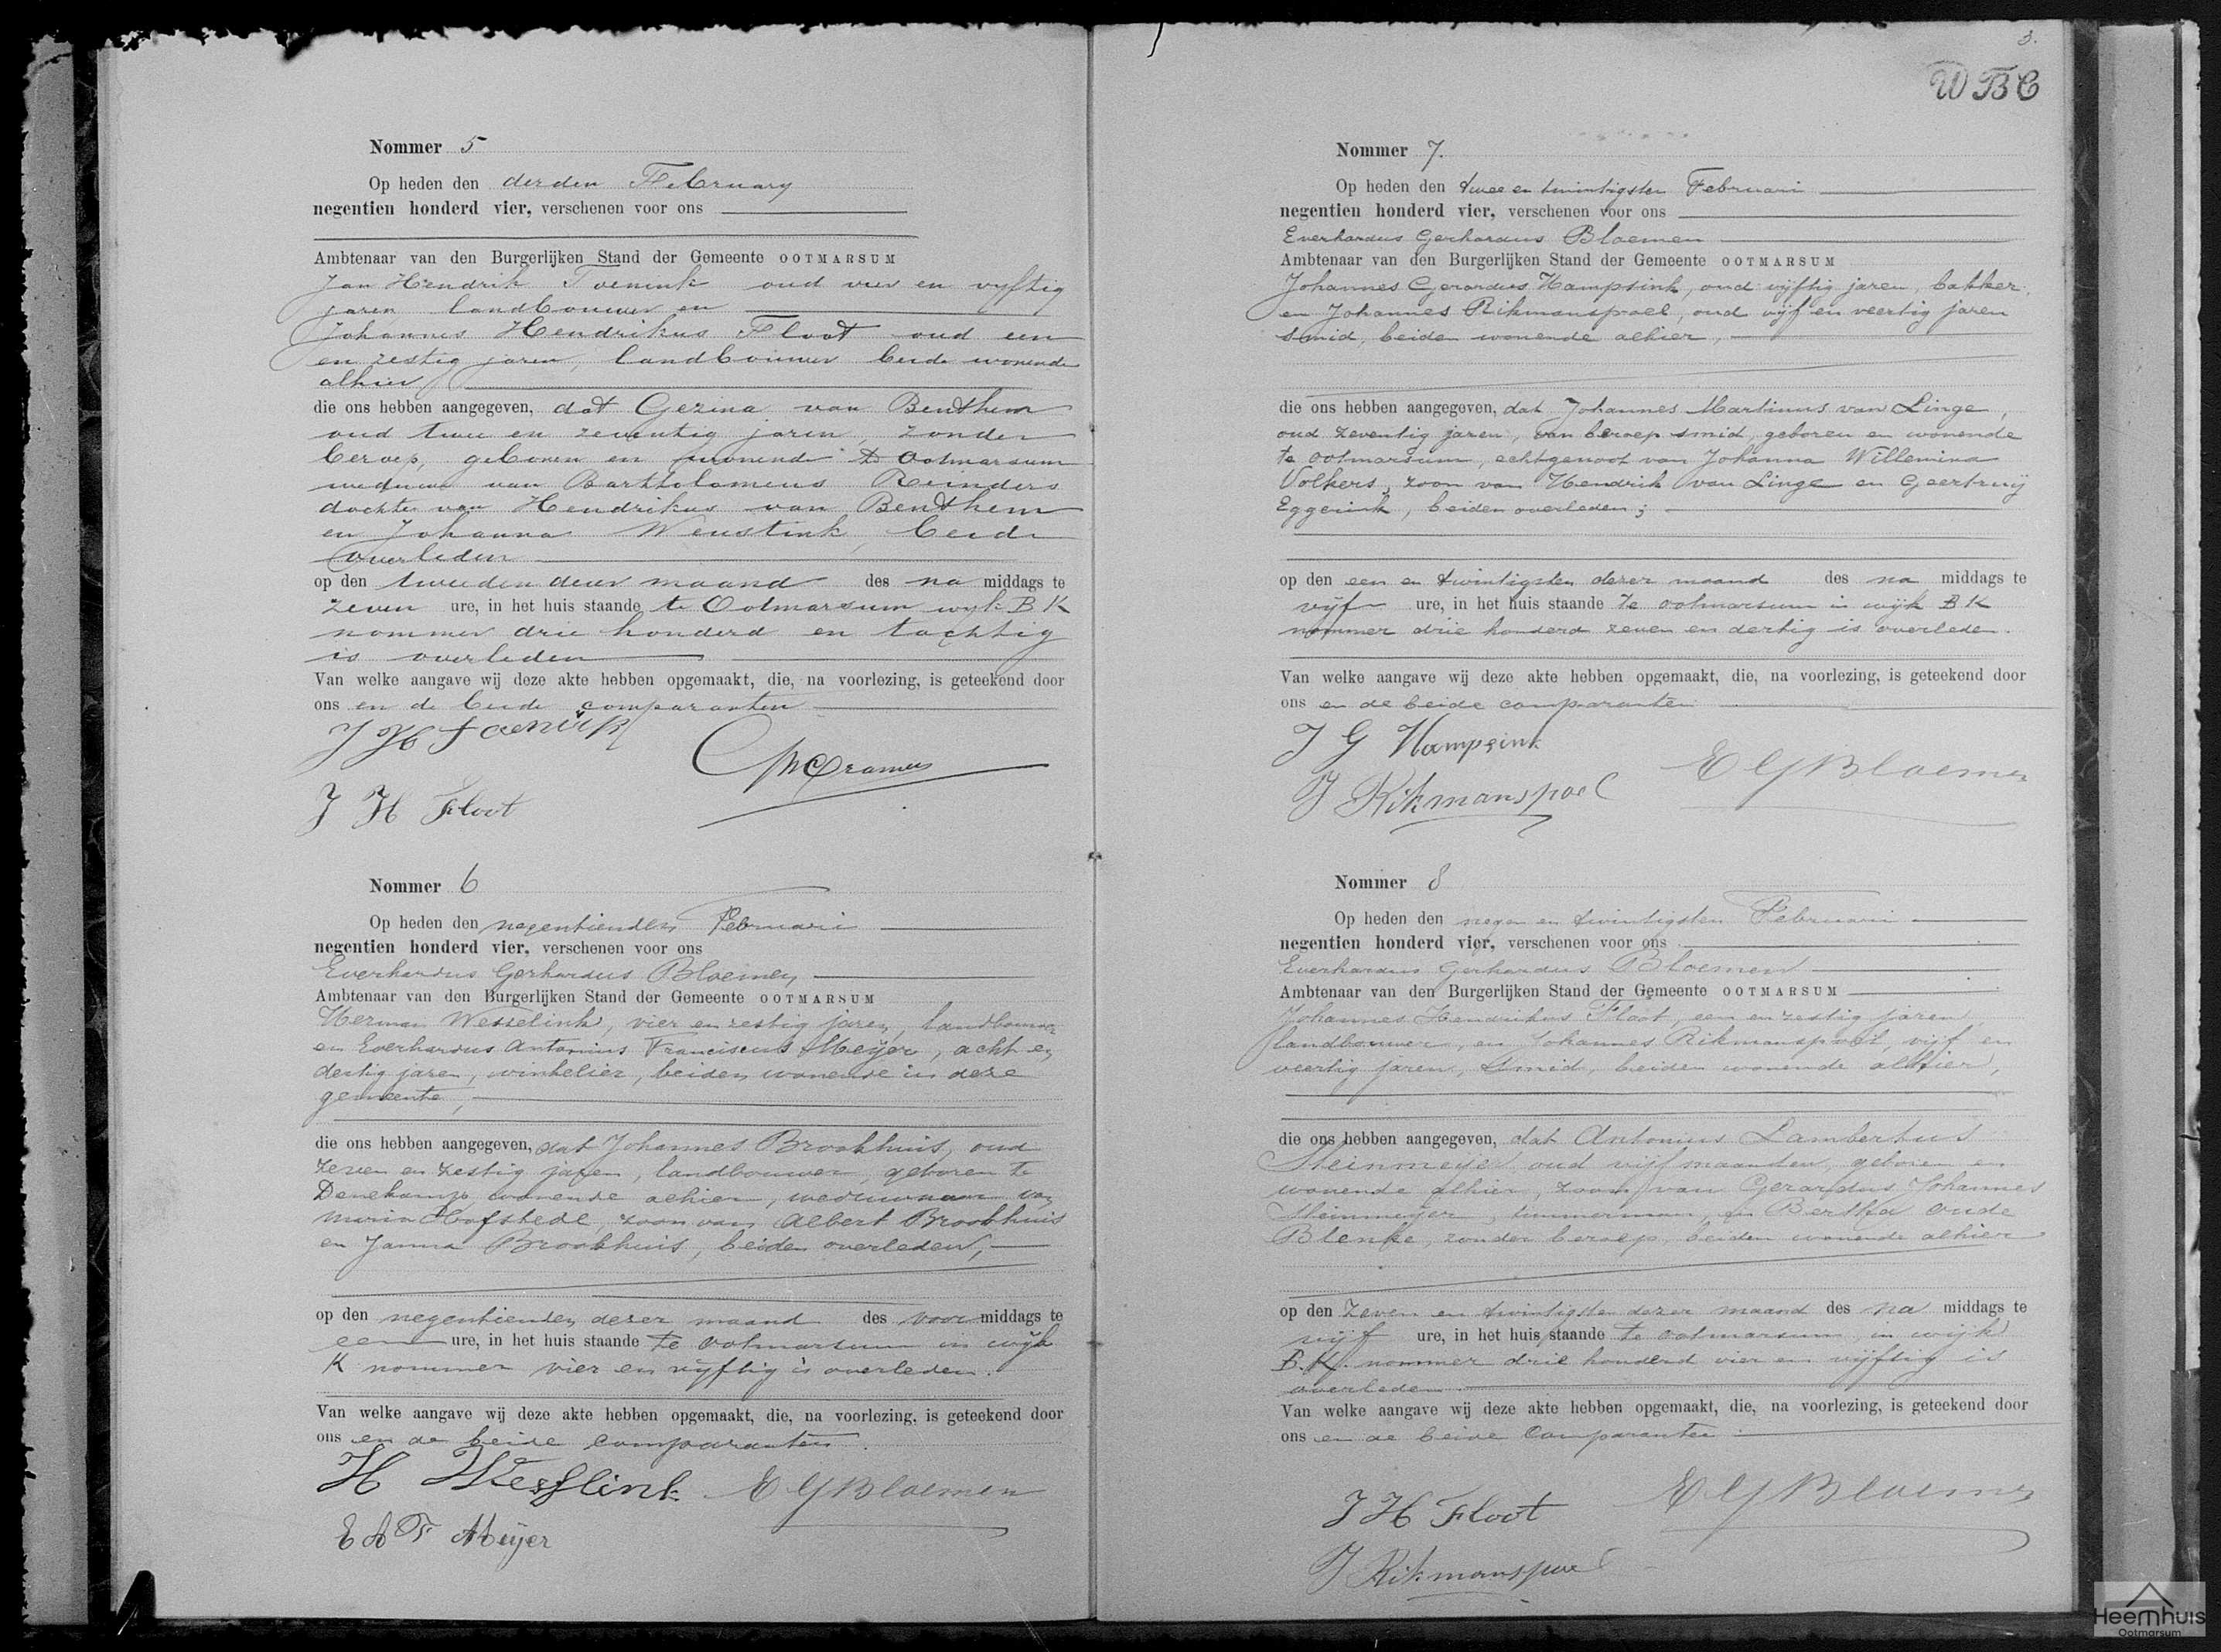 Nommer 5
Op heden den derden February
negentien honderd vier, verschenen voor ons
Ambtenaar van den Burgerlijken Stand der Gemeente OOTMARSUM
Jan Hendrik oud vier en vyftig
jaren landbouwer en
Johannes Hendrikus Floot oud een
en zestig jaren, landbouwer beide wonende
alhier
die ons hebben aangegeven, dat Gezina van Benthem
oud twee en zeventig jaren, zonder
beroep, geboren en wonende te Ootmarsum
weduwe van Bartholomeus Reinders
dochter van Hendrikus van Benthem
en Johanna Weustink, beide
overleden
op den tweeden dezer maand des na middags te
zeven ure, in het huis staande te Ootmarsum wyk B K
nommer drie honderd en tachtig
is overleden
Van welke aangave wij deze akte hebben opgemaakt, die, na voorlezing, is geteekend door
ons en de beide comparanten
J H
Cramer
J H Floot
Nommer 6
Op heden den negentienden Februari
negentien honderd vier, verschenen voor ons
Everhardus Gerhardus Bloemen,
Ambtenaar van den Burgerlijken Stand der Gemeente OOTMARSUM
Herman Wesselink, vier en zestig jaren, landbouwer
en Everhardus Antonius Franciscus Meijer, acht en
dertig jaren, winkelier, beiden wonende in deze
gemeente,
die ons hebben aangegeven, dat Johannes Brookhuis, oud
zeven en zestig jaren, landbouwer, geboren te
Denekamp wonende alhier, weduwnaar van
Maria Hofstede, zoon van Albert Brookhuis
en Janna Brookhuis, beiden overleden,
op den negentienden dezer maand des voormiddags te
een ure, in het huis staande te Ootmarsum in wijk
K nommer vier en vijftig is overleden.
Van welke aangave wij deze akte hebben opgemaakt, die, na voorlezing, is geteekend door
ons en de beide comparanten.
H Wesslink E G Bloemen
E A F Meijer
3.
W B C
Nommer 7.
Op heden den twee en twintigsten Februari
negentien honderd vier, verschenen voor ons
Everhardus Gerhardus Bloemen
Ambtenaar van den Burgerlijken Stand der Gemeente OOTMARSUM
Johannes Gerardus Hampsink, oud vijftig jaren, bakker,
en Johannes Rikmanspoel, oud vijf en veertig jaren
smid, beiden wonende alhier,
die ons hebben aangegeven, dat Johannes Martinus van Linge,
oud zeventig jaren, van beroep smid, geboren en wonende
te Ootmarsum, echtgenoot van Johanna Willemina
Volkers, zoon van Hendrik van Linge en Geertruij
Eggerink, beiden overleden;
op den een en twintigsten dezer maand des na middags te
vijf ure, in het huis staande te Ootmarsum in wijk B K
nommer drie honderd zeven en dertig is overleden.
Van welke aangave wij deze akte hebben opgemaakt, die, na voorlezing, is geteekend door
ons en de beide comparanten
J G Hampsink
E G Bloemen
J Rikmanspoel
Nommer 8
Op heden den negen en twintigsten Februari
negentien honderd vier, verschenen voor ons
Everhardus Gerhardus Bloemen
Ambtenaar van den Burgerlijken Stand der Gemeente OOTMARSUM
Johannes Hendrikus Floot, een en zestig jaren
landbouwer, en Johannes Rikmanspoel, vijf en
veertig jaren, smid, beiden wonende alhier,
die ons hebben aangegeven, dat Antonius Lambertus
Steinmeijer, oud vijf maanden, geboren en
wonende alhier, zoon van Gerardus Johannes
Steinmeijer, timmerman, en Bertha Oude
Blenke, zonder beroep, beiden wonende alhier
op den zeven en twintigsten dezer maand des na middags te
vijf ure, in het huis staande te Ootmarsum, in wijk
B.K. nommer drie honderd vier en vijftig is
overleden
Van welke aangave wij deze akte hebben opgemaakt, die, na voorlezing, is geteekend door
ons en de beide Comparanten
E G Bloemen
J H Floot
J Rikmanspoel
Heemhuis
Ootmarsum